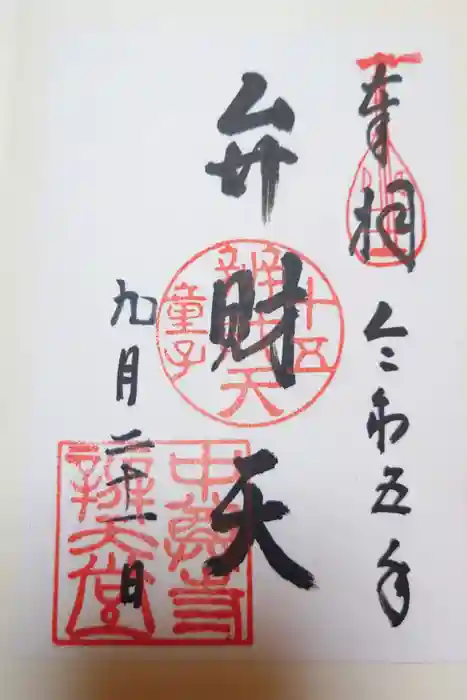 奉拝 令和五年
弁財天
九月二十一日
辨財天
十五
童子
中尊寺
辨天堂